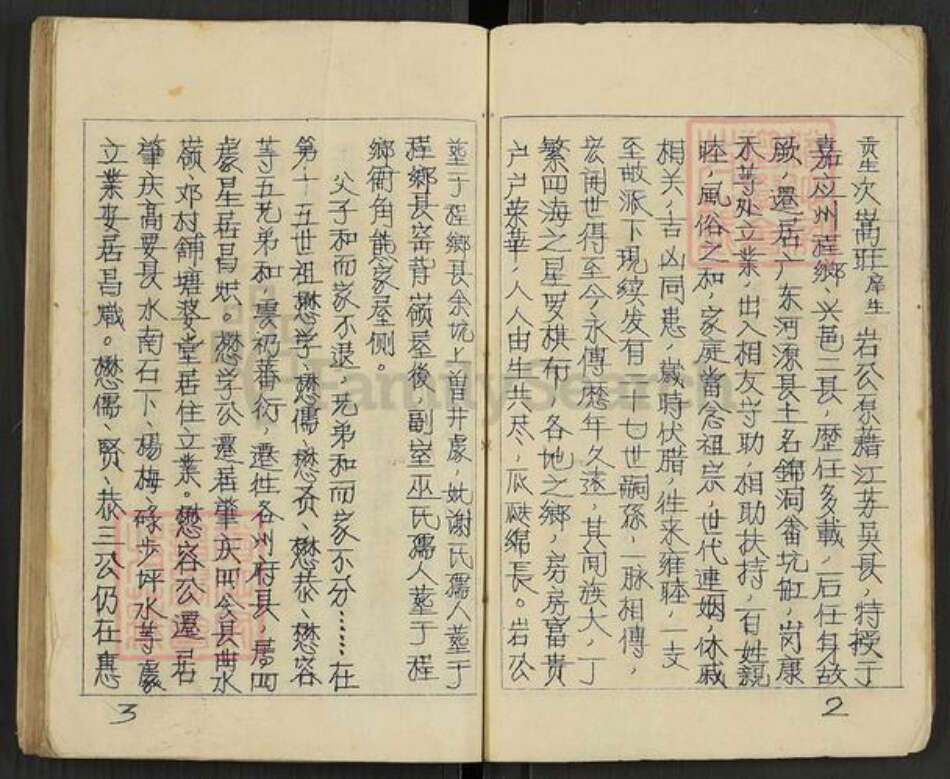 贡生次嵩莊庠生岩公原藉江苏吴县,特授于
嘉应州程鄉兴邑二县,歷任多載,后任身故
厥,還居广东河源县土名錦洞畬坑缸,岗康
禾等处立業,出入相友守助,相助扶持,百姓親
睦,風俗之和,家庭當念祖宗,世代連姻,休戚
相关,吉凶同患,歲時伏腊,往来雍睦,一支
至敝派下現续发有二十七世嗣孫,一脉相傳,
宏開世得至今,永傳歷年久遠,其间族大,丁
繁四海之星罗棋布,各地之鄉,房房富貴
户户荣華,人人由生共尽,瓜瓞绵長。岩公
塟于程鄉县余坑上曽井處,妣谢氏孺人塟于
程鄉县窑背嶺屋後,副室巫氏孺人塟于程
鄉衙角熊家屋侧。
父子和而家不退,兄弟和而家不分……在
第十五世祖懋学、懋儒、懋贤、懋恭、懋容
等五兄弟和,雲礽蕃衍,遷往各州府县,居四
處星居昌炽。懋学公遷居肇庆四会县曲水
嶺、邓村舖塘婆堂居住立業。懋容公還居
肇庆高要县水南石下、楊梅、碌步坪水等處
立業安居昌熾。懋儒、賢、恭三公仍在惠
3
2
FamilySearch